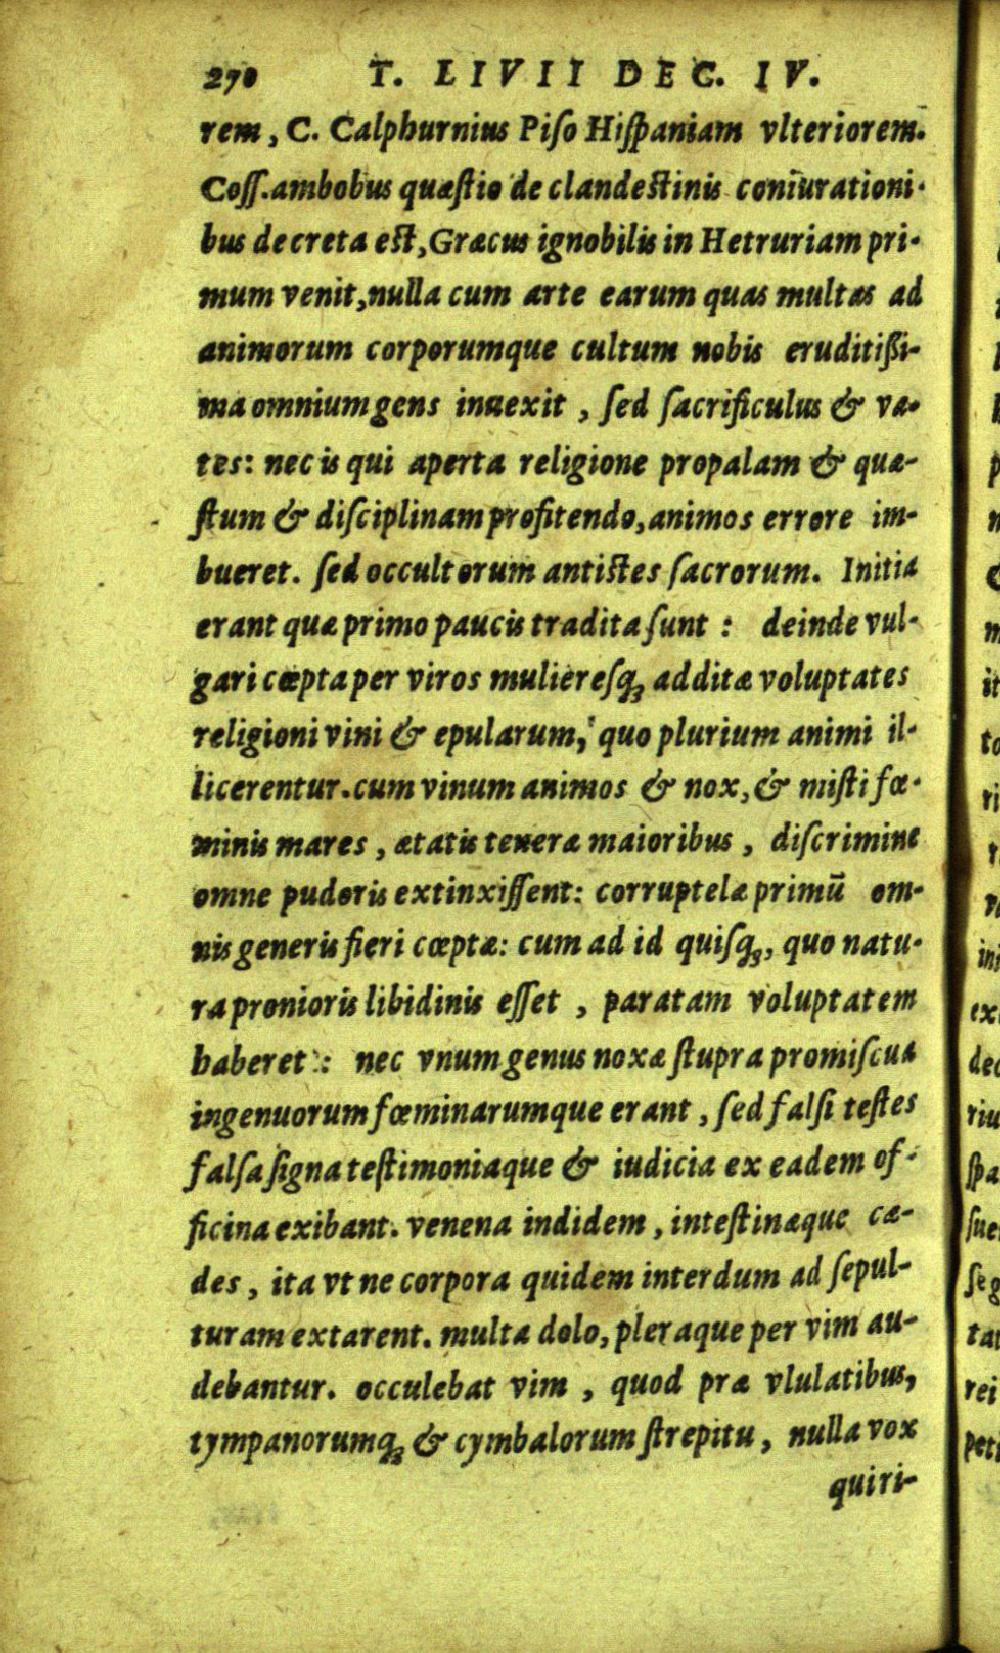 270 T. LIVII DEC. IV.
rem, C. Calphurnius Piſo Hiſpaniam vlteriorem.
Coſſ. ambobus quæſtio de clandeſtinis coniurationi-
bus decreta eſt, Græcus ignobilis in Hetruriam pri-
mum venit, nulla cum arte earum quas multas ad
animorum corporumque cultum nobis eruditiſſi-
ma omnium gens inuexit, ſed ſacrificulus & va-
tes: nec is qui aperta religione propalam & quæ-
ſtum & diſciplinam profitendo, animos errore im-
bueret. ſed occultorum antiſtes ſacrorum. Initia
erant quæ primo paucis tradita ſunt: deinde vul-
gari cœpta per viros mulieresq; additæ voluptates
religioni vini & epularum, quo plurium animi il-
licerentur. cum vinum animos & nox, & miſti fœ-
minis mares, ætatis teneræ maioribus, diſcrimine
omne pudoris extinxiſſent: corruptelæ primū om-
nis generis fieri cœptæ: cum ad id quiſq;, quo natu-
ra pronioris libidinis eſſet, paratam voluptatem
haberet: nec vnum genus noxæ ſtupra promiſcua
ingenuorum fœminarumque erant, ſed falſi teſtes
falſa ſigna teſtimoniaque & iudicia ex eadem of-
ficina exibant. venena indidem, inteſtinæque cæ-
des, ita vt ne corpora quidem interdum ad ſepul-
turam extarent. multa dolo, pleraque per vim au-
debantur. occulebat vim, quod præ vlulatibus,
tympanorumq; & cymbalorum ſtrepitu, nulla vox
quiri-